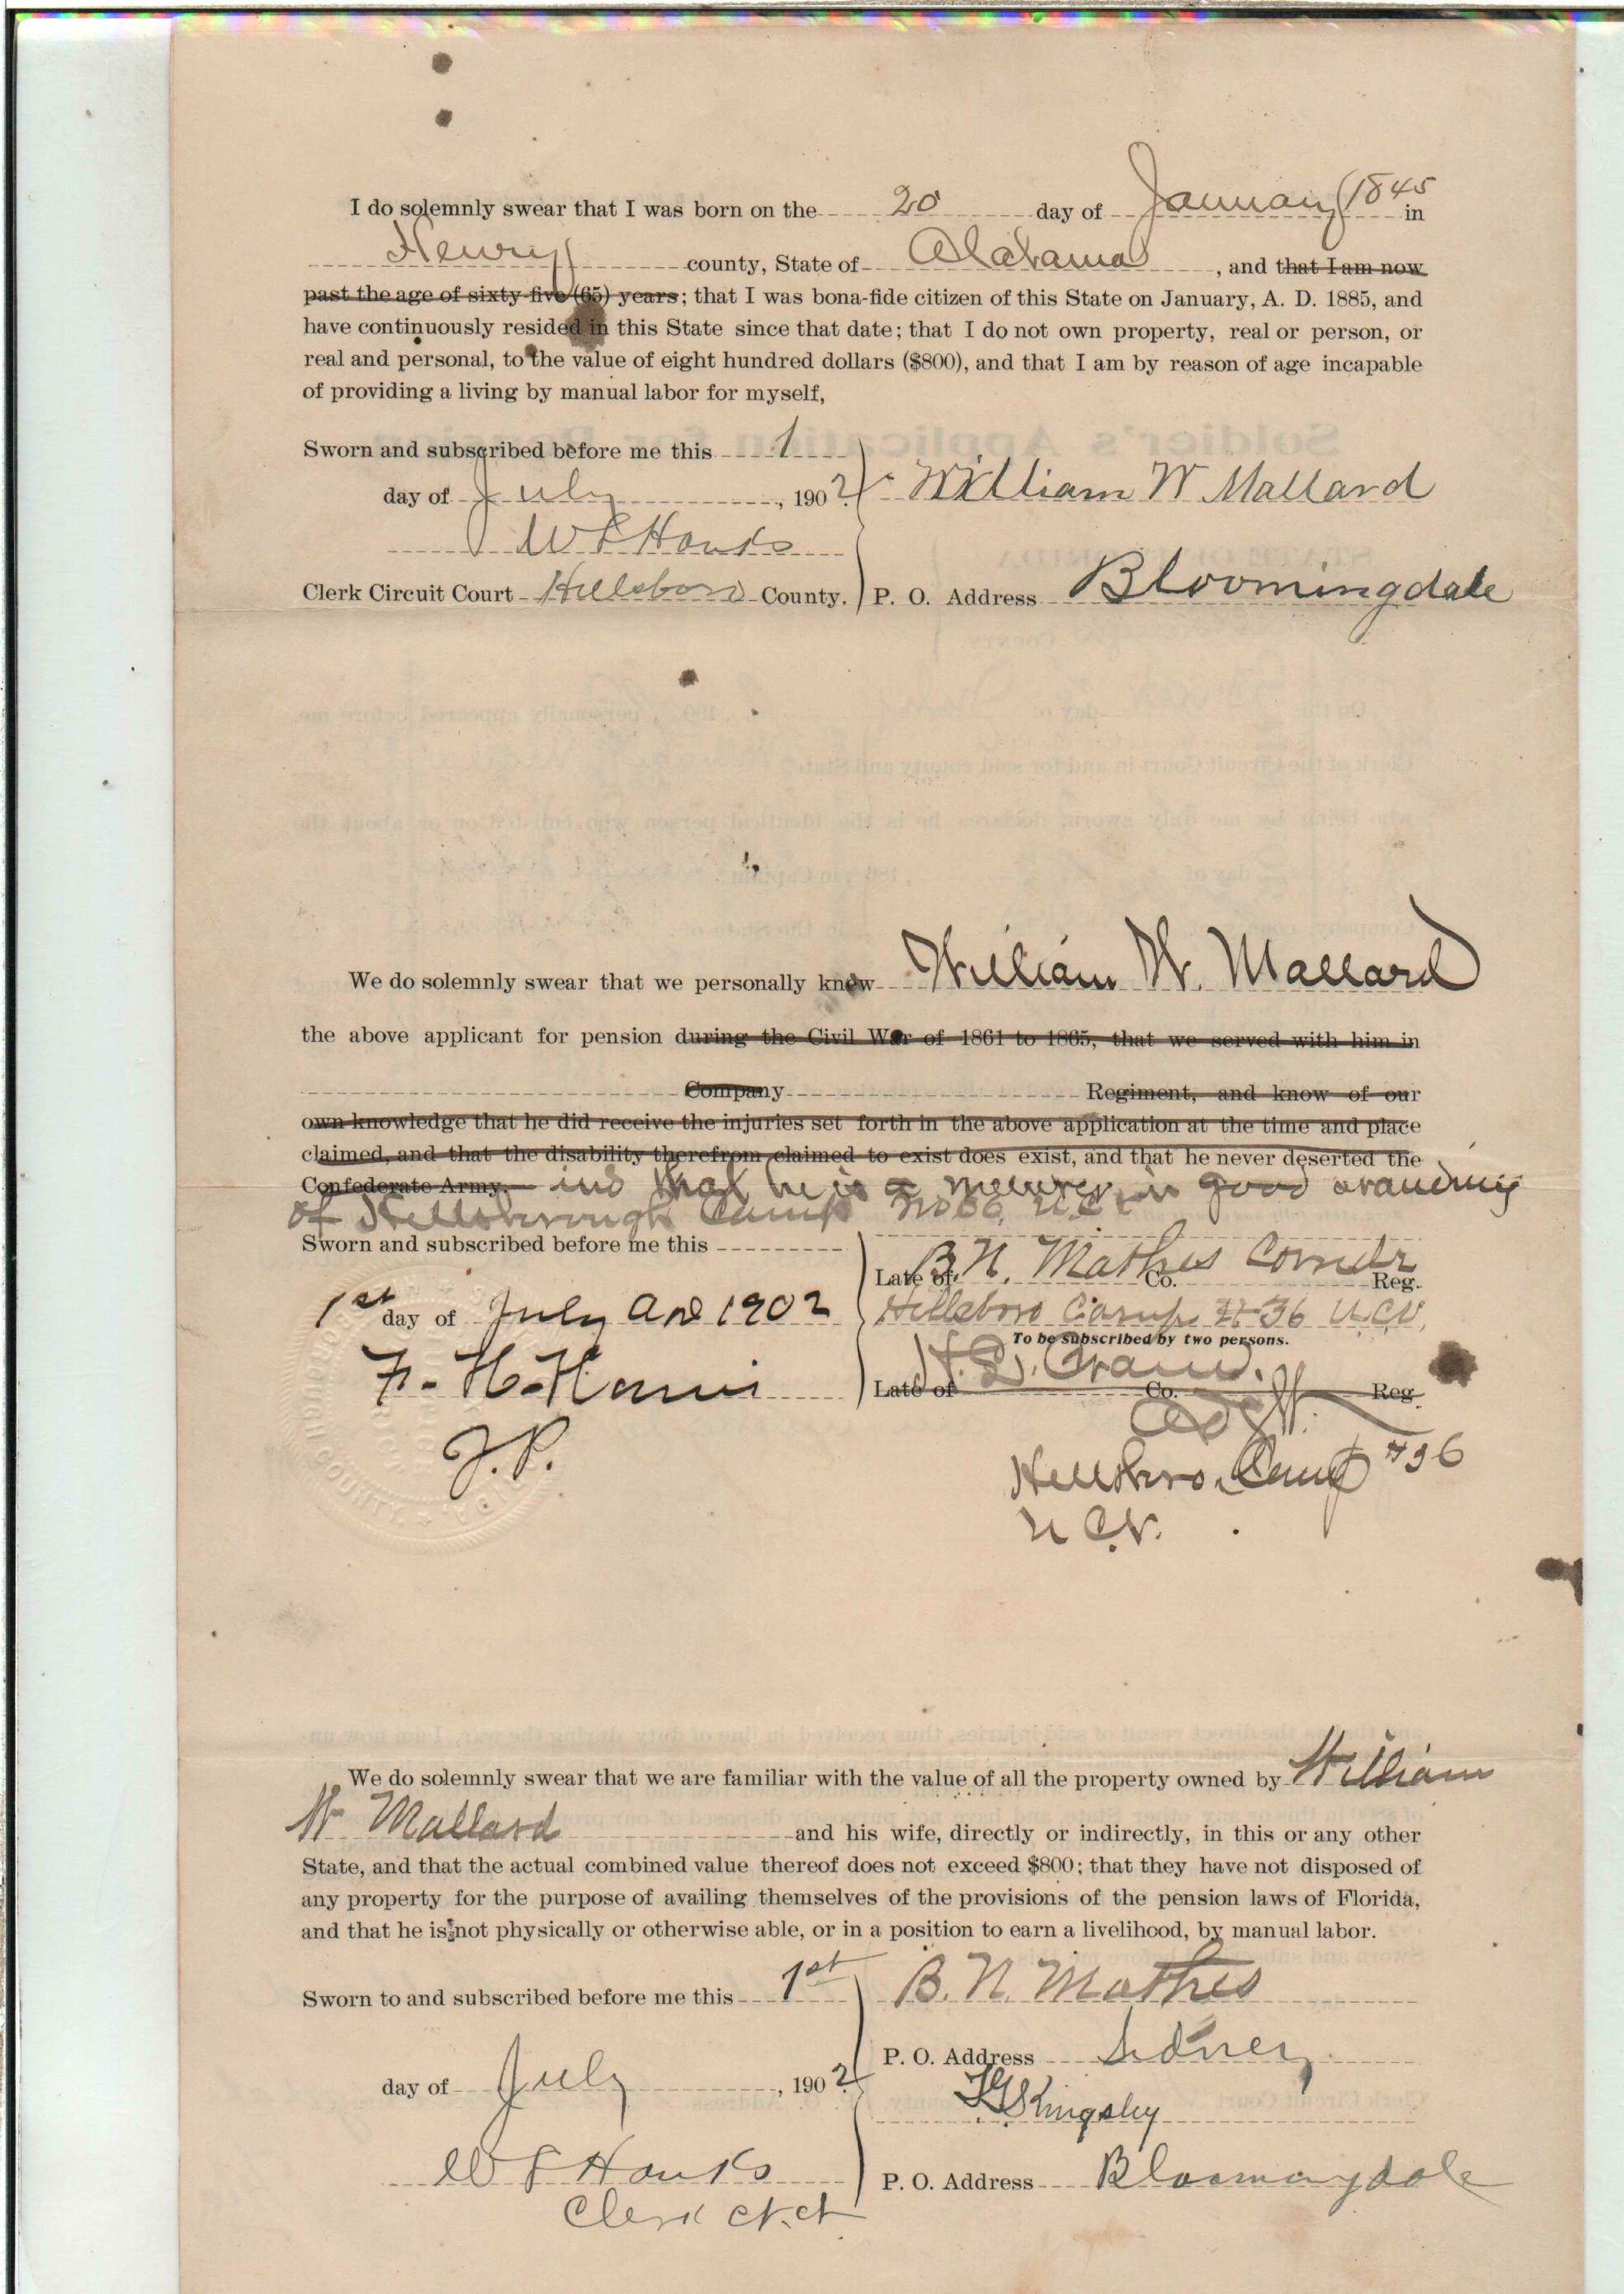 I do solemnly swear that I was born on the 20 day of January (1845 in
Henry county, State of Alabama, and that I am now
past the age of sixty-five (65) years; that I was bona-fide citizen of this State on January, A. D. 1885, and
have continuously resided in this State since that date; that I do not own property, real or person, or
real and personal, to the value of eight hundred dollars ($800), and that I am by reason of age incapable
of providing a living by manual labor for myself,
Sworn and subscribed before me this 1
day of July, 1902. William W Mallard
Clerk Circuit Court Hillsboro County. P. O. Address Bloomingdale
We do solemnly swear that we personally know William W. Mallard
the above applicant for pension during the Civil War of 1861 to 1865, that we served with him in
Company Regiment, and know of our
own knowledge that he did receive the injuries set forth in the above application at the time and place
claimed, and that the disability therefrom claimed to exist does exist, and that he never deserted the
Confederate Army. that he is a member in good standing
of Hillsborough Camp
Sworn and subscribed before me this
Late of B. N. Mathes Comdr Co. Reg.
1st day of July AD 1902 Hillsboro Camp # 36 U.C.V.
To be subscribed by two persons.
F. H. Harris Late of Co. Reg.
J. P.
Hillsboro Camp #36
U C.V.
We do solemnly swear that we are familiar with the value of all the property owned by William
W Mallard and his wife, directly or indirectly, in this or any other
State, and that the actual combined value thereof does not exceed $800; that they have not disposed of
any property for the purpose of availing themselves of the provisions of the pension laws of Florida,
and that he is not physically or otherwise able, or in a position to earn a livelihood, by manual labor.
Sworn to and subscribed before me this 1st B. N. Mathes
P. O. Address Sidney
day of July, 1902.
Kingsley
P. O. Address Bloomingdale
Clerk Ct. Ct